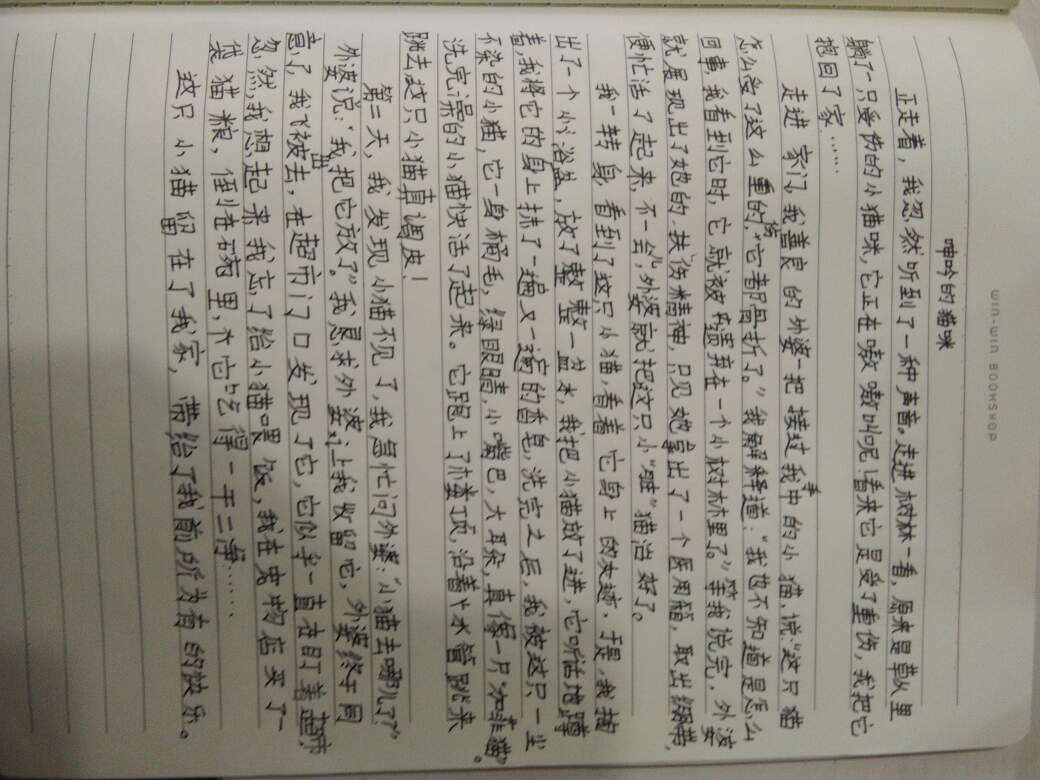 WIN-WIN BOOKSHOP
呻吟的猫咪
正走着，我忽然听到了一种声音。走进树林一看，原来是草从里
躺了一只受伤的小猫咪，它正在嗷嗷叫呢！看来它是受了重伤，我把它
抱回了家……
走进家门，我善良的外婆一把接过我手中的小猫，说：“这只猫
怎么受了这么重的伤，它都骨折了。”我解释道：“我也不知道是怎么
回事，我看到它时，它就被遗弃在一个小树林里了。”等我说完，外婆
就是现出了她的“扶伤”精神，只见她拿出了一个医用箱，取出绷带，
便忙活了起来，不一会，外婆就把这只小“雅”猫治好了。
我一转身，看到了这只小猫，看着它身上的灰迹，于是，我抽
出了一个小浴盆，放了整整一盆水，我把小猫放了进，它听话地蹲
着，我将它的身上抹了一遍又一遍的香皂，洗完之后，我被这只一尘
不染的小猫，它一身橘毛，绿眼睛，小嘴巴，大耳朵，真像一只“加菲猫”。
洗完澡的小猫快活了起来。它跑上了楼顶，沿着下水管跳来
跳去，这只小猫真调皮！
第二天，我发现小猫不见了，我急忙问外婆：“小猫去哪儿了？”
外婆说：“我把它放了。”我恳求外婆让我收留它，外婆终于同
意了，我飞被出去，在超市门口发现了它，它似乎一直在盯着超市
忽然，我想起来我忘了给小猫喂饭，我在宠物店买了一
袋猫粮，倒在碗里，它吃得一干二净……
这只小猫留在了我家，带给了我前所为有的快乐。